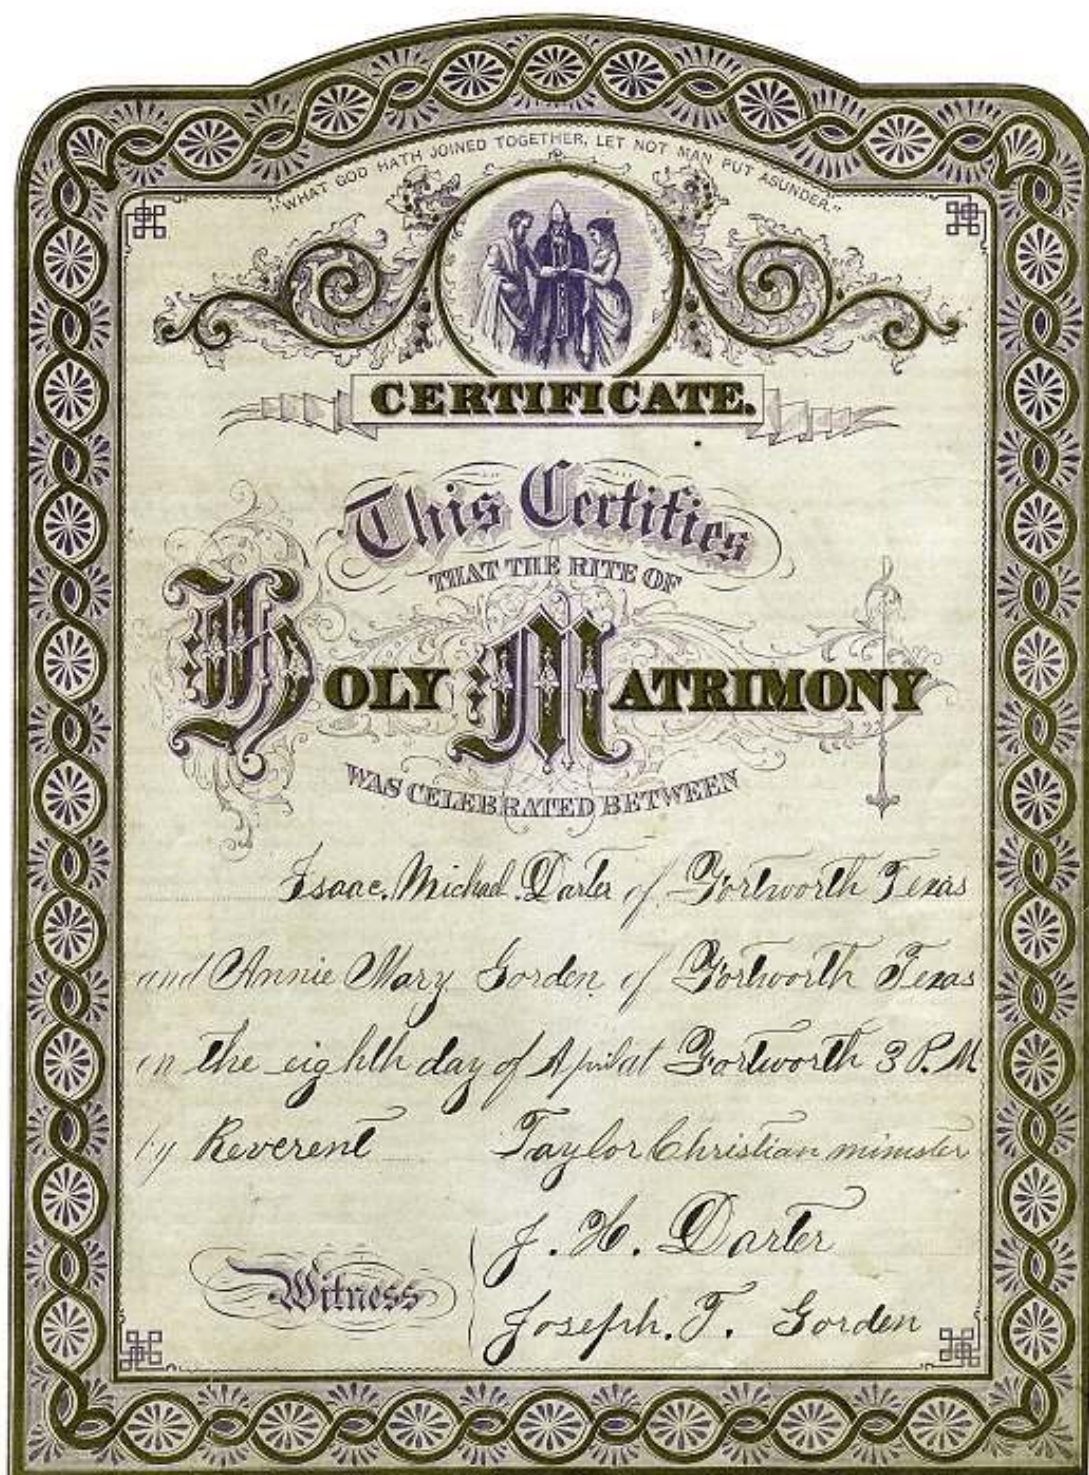 "WHAT GOD HATH JOINED TOGETHER, LET NOT MAN PUT ASUNDER."
CERTIFICATE.
This Certifies
THAT THE RITE OF
HOLY MATRIMONY
WAS CELEBRATED BETWEEN
Isaac. Michael. Darter of Fortworth Texas
and Annie Mary Gorden. of Fortworth Texas
on the eighth day of April at Fortworth 3 P.M.
by Reverent Taylor Christian minister
Witness
J. H. Darter
Joseph. F. Gorden